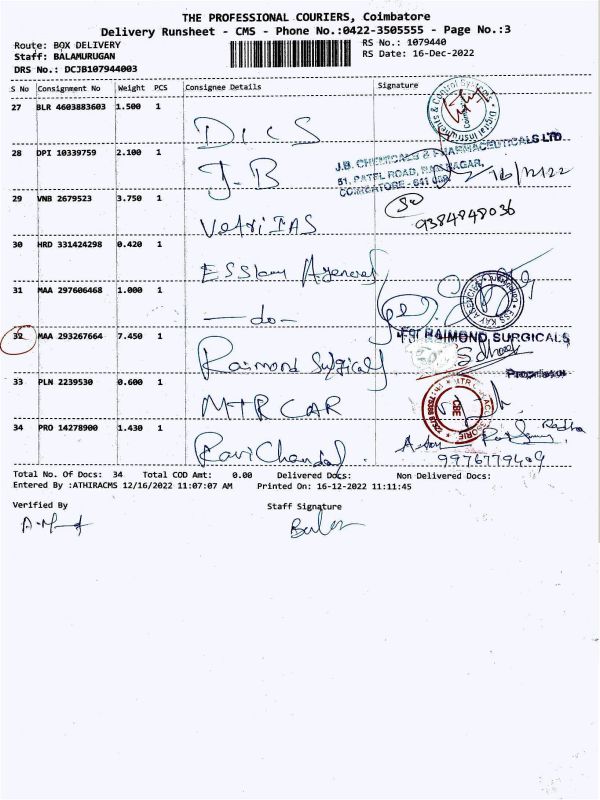 THE PROFESSIONAL COURIERS, Coimbatore
Delivery Runsheet - CMS - Phone No.:0422-3505555 - Page No.:3
Route: BOX DELIVERY
RS No.: 1079440
Staff: BALAMURUGAN
RS Date: 16-Dec-2022
DRS No.: DCJB107944003
S No Consignment No Weight PCS Consignee Details Signature
27 BLR 4603883603 1.500 1
DICS
28 DPI 10339759 2.100 1
J.B. CHEMICALS & PHARMACEUTICALS LTD.
51, PATEL ROAD, RAM NAGAR,
COIMBATORE - 641 009
J.B
16/12/22
29 VNB 2679523 3.750 1
Vetri IAS
9384848036
30 HRD 331424298 0.420 1
31 MAA 297606468 1.000 1
-do-
32 MAA 293267664 7.450 1
RAIMOND SURGICALS
Raimond Surgical
Proprietor
33 PLN 2239530 0.600 1
MTR CAR
CBE
34 PRO 14278900 1.430 1
Ravi Chandar
9976779409
Total No. Of Docs: 34 Total COD Amt: 0.00 Delivered Docs: Non Delivered Docs:
Entered By :ATHIRACMS 12/16/2022 11:07:07 AM Printed On: 16-12-2022 11:11:45
Verified By Staff Signature